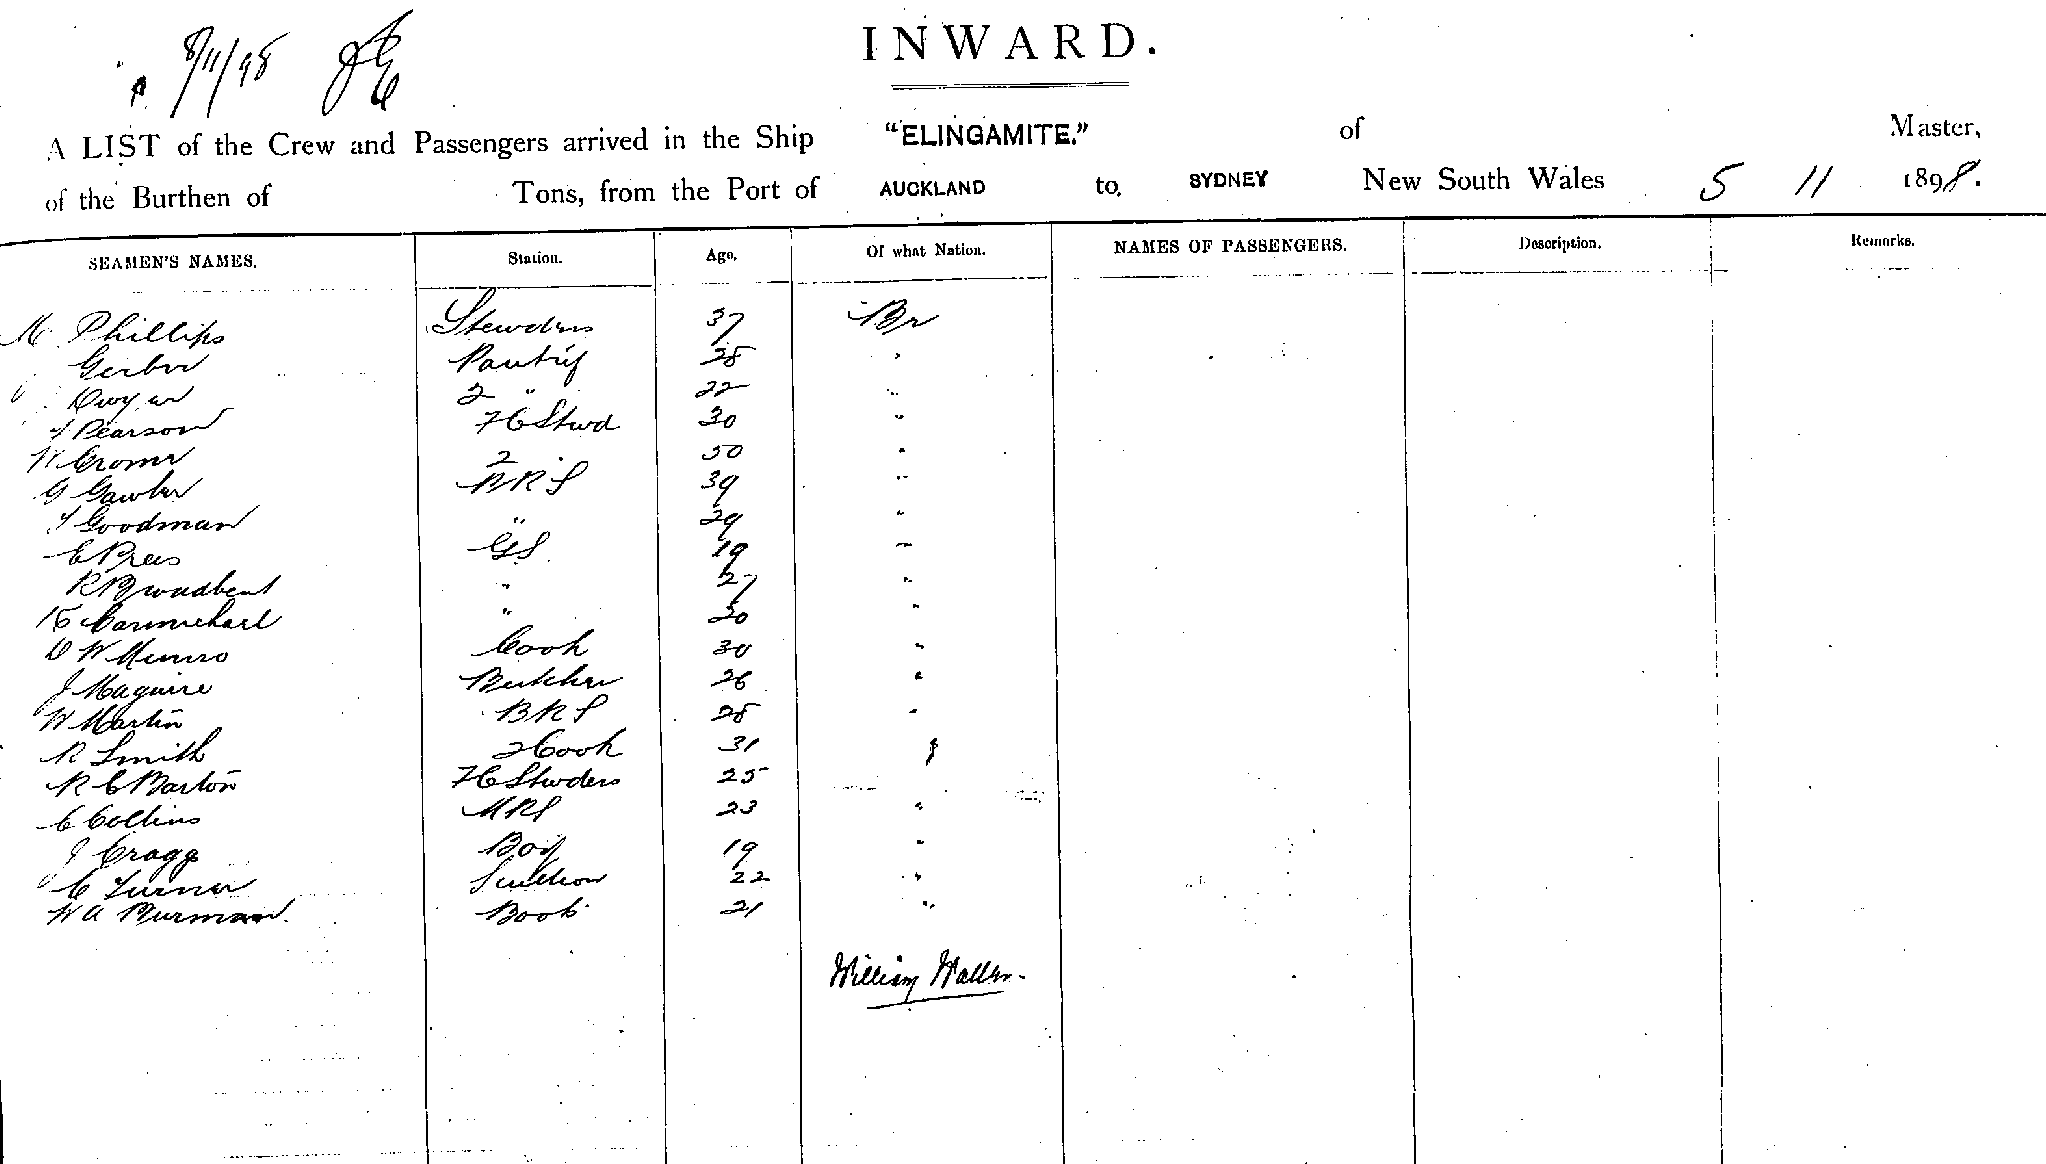 8/11/98
INWARD.
A LIST of the Crew and Passengers arrived in the Ship "ELINGAMITE." of Master,
of the Burthen of Tons, from the Port of AUCKLAND to, SYDNEY New South Wales 5 11 1898.
SEAMEN'S NAMES. Station. Age. Of what Nation. NAMES OF PASSENGERS. Description. Remarks.
M Phillips Stewdess 37 Br
Gerber 28 "
Dwyer 2 " 22 "
Pearson FC Stwd 30 "
W Cromer 2 50 "
G Gawler BRS 39 "
Goodman " 29 "
C Brees GS. 19 "
R Broadbent " 27 "
Carmichael " 20 "
D W Munro Cook 30 "
J Maguire Butcher 26 "
W Martin BRS 28 "
R Smith 2 Cook 31 "
R C Barton FC Stwdess 25
C Collins MRS 23 "
J Cragg Boy 19 "
C Turner Scullion 22 "
W A Burman. Boots 21 "
William Waller.